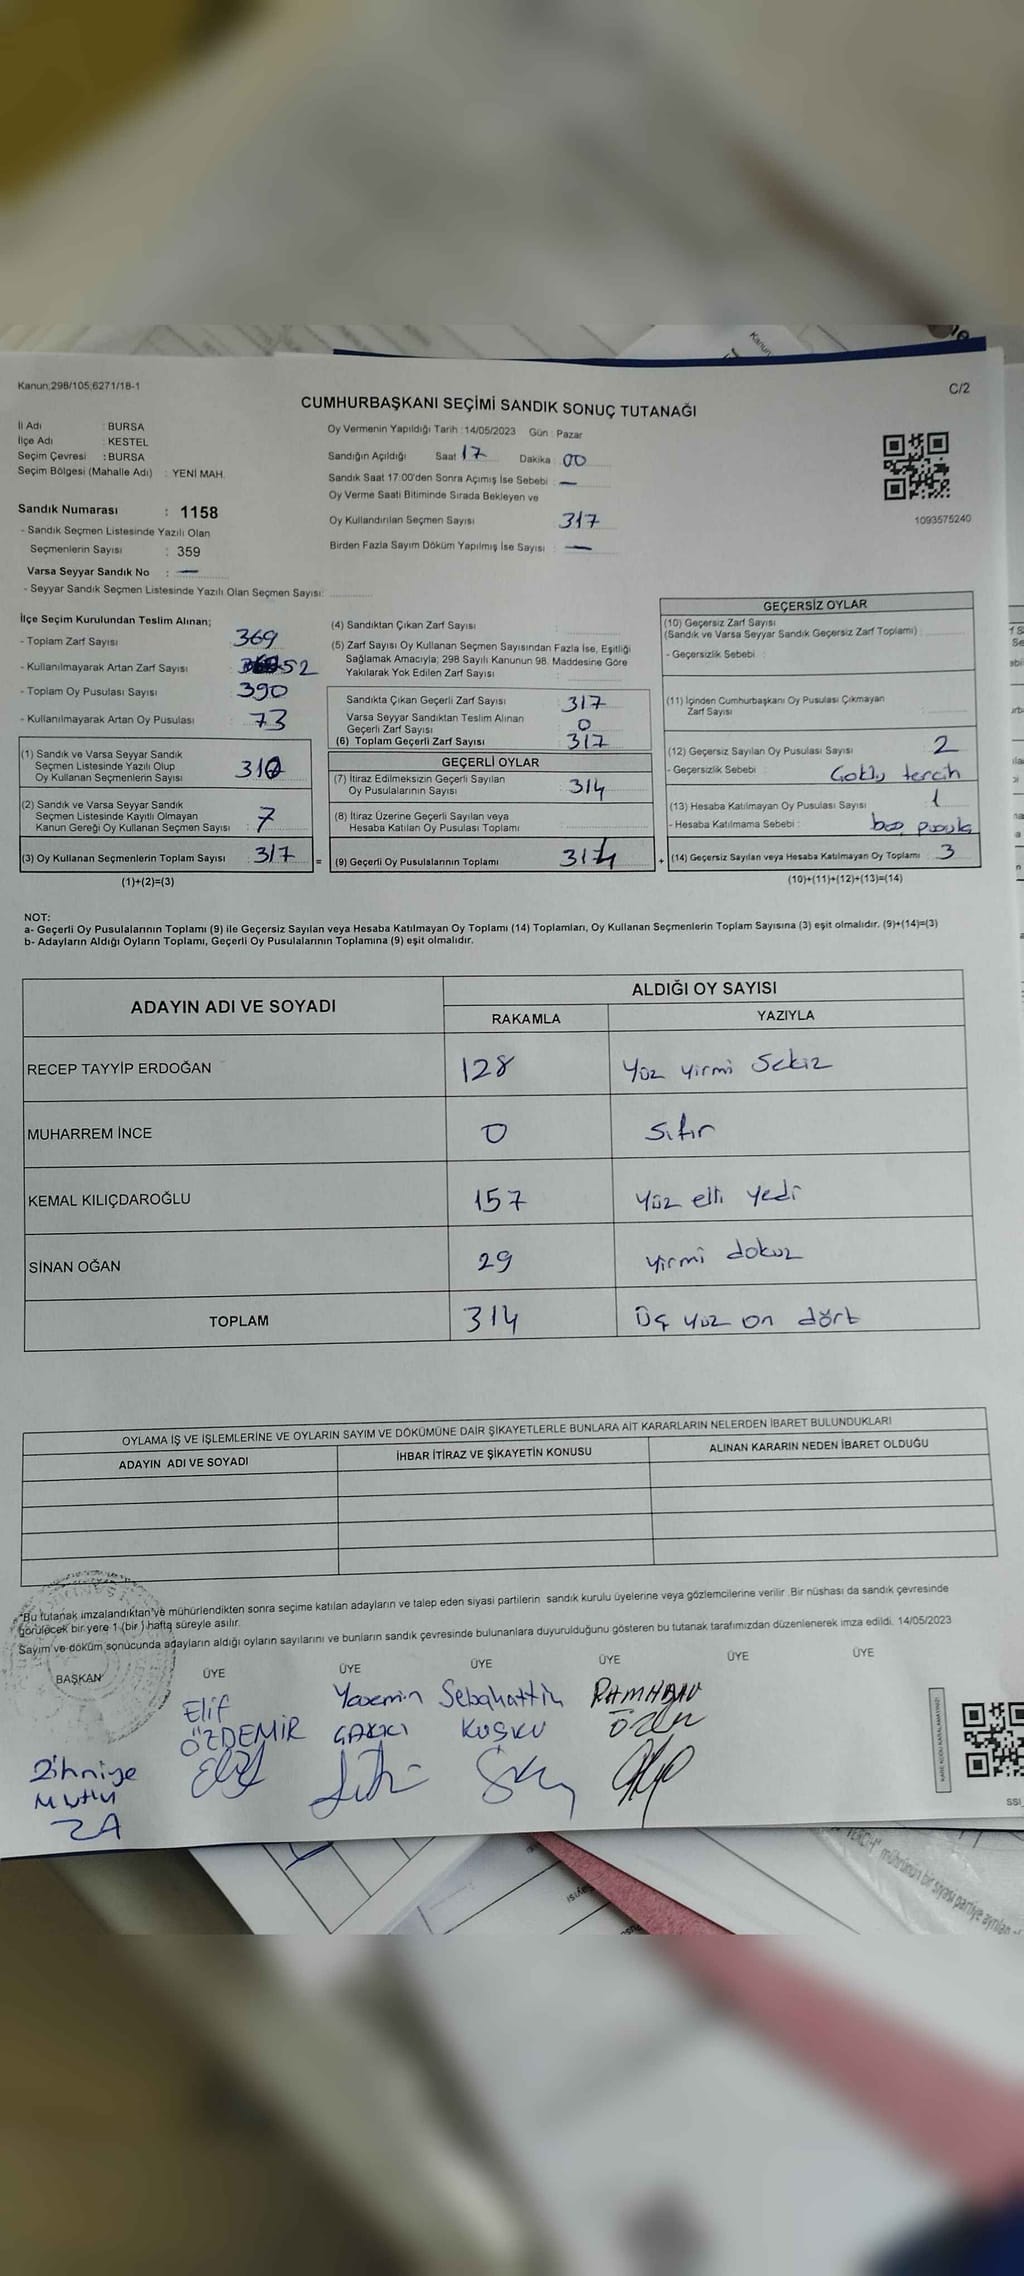 Kanun;298/105;6271/18-1
C/2
CUMHURBAŞKANI SEÇİMİ SANDIK SONUÇ TUTANAĞI
İl Adı : BURSA
İlçe Adı : KESTEL
Seçim Çevresi : BURSA
Seçim Bölgesi (Mahalle Adı) : YENİ MAH.
Sandık Numarası : 1158
- Sandık Seçmen Listesinde Yazılı Olan
Seçmenlerin Sayısı : 359
Varsa Seyyar Sandık No : —
- Seyyar Sandık Seçmen Listesinde Yazılı Olan Seçmen Sayısı:
Oy Vermenin Yapıldığı Tarih :14/05/2023 Gün : Pazar
Sandığın Açıldığı Saat 17 Dakika : 00
Sandık Saat 17:00'den Sonra Açımış İse Sebebi : —
Oy Verme Saati Bitiminde Sırada Bekleyen ve
Oy Kullandırılan Seçmen Sayısı 317
Birden Fazla Sayım Döküm Yapılmış İse Sayısı : —
1093575240
İlçe Seçim Kurulundan Teslim Alınan;
- Toplam Zarf Sayısı 369
- Kullanılmayarak Artan Zarf Sayısı : 52
- Toplam Oy Pusulası Sayısı : 390
- Kullanılmayarak Artan Oy Pusulası : 73
(1) Sandık ve Varsa Seyyar Sandık
Seçmen Listesinde Yazılı Olup
Oy Kullanan Seçmenlerin Sayısı : 310
(2) Sandık ve Varsa Seyyar Sandık
Seçmen Listesinde Kayıtlı Olmayan
Kanun Gereği Oy Kullanan Seçmen Sayısı : 7
(3) Oy Kullanan Seçmenlerin Toplam Sayısı : 317 =
(1)+(2)=(3)
(4) Sandıktan Çıkan Zarf Sayısı :
(5) Zarf Sayısı Oy Kullanan Seçmen Sayısından Fazla İse, Eşitliği
Sağlamak Amacıyla; 298 Sayılı Kanunun 98. Maddesine Göre
Yakılarak Yok Edilen Zarf Sayısı :
Sandıkta Çıkan Geçerli Zarf Sayısı : 317
Varsa Seyyar Sandıktan Teslim Alınan
Geçerli Zarf Sayısı : 0
(6) Toplam Geçerli Zarf Sayısı : 317
GEÇERLİ OYLAR
(7) İtiraz Edilmeksizin Geçerli Sayılan
Oy Pusulalarının Sayısı : 314
(8) İtiraz Üzerine Geçerli Sayılan veya
Hesaba Katılan Oy Pusulası Toplamı :
(9) Geçerli Oy Pusulalarının Toplamı : 314 +
GEÇERSİZ OYLAR
(10) Geçersiz Zarf Sayısı
(Sandık ve Varsa Seyyar Sandık Geçersiz Zarf Toplamı) :
- Geçersizlik Sebebi :
(11) İçinden Cumhurbaşkanı Oy Pusulası Çıkmayan
Zarf Sayısı :
(12) Geçersiz Sayılan Oy Pusulası Sayısı : 2
- Geçersizlik Sebebi : Çoklu tercih
(13) Hesaba Katılmayan Oy Pusulası Sayısı : 1
- Hesaba Katılmama Sebebi : boş pusula
(14) Geçersiz Sayılan veya Hesaba Katılmayan Oy Toplamı : 3
(10)+(11)+(12)+(13)=(14)
NOT:
a- Geçerli Oy Pusulalarının Toplamı (9) ile Geçersiz Sayılan veya Hesaba Katılmayan Oy Toplamı (14) Toplamları, Oy Kullanan Seçmenlerin Toplam Sayısına (3) eşit olmalıdır. (9)+(14)=(3)
b- Adayların Aldığı Oyların Toplamı, Geçerli Oy Pusulalarının Toplamına (9) eşit olmalıdır.
ADAYIN ADI VE SOYADI ALDIĞI OY SAYISI
RAKAMLA YAZIYLA
RECEP TAYYİP ERDOĞAN 128 Yüz yirmi sekiz
MUHARREM İNCE 0 sıfır
KEMAL KILIÇDAROĞLU 157 Yüz elli yedi
SİNAN OĞAN 29 yirmi dokuz
TOPLAM 314 Üç yüz on dört
OYLAMA İŞ VE İŞLEMLERİNE VE OYLARIN SAYIM VE DÖKÜMÜNE DAİR ŞİKAYETLERLE BUNLARA AİT KARARLARIN NELERDEN İBARET BULUNDUKLARI
ADAYIN ADI VE SOYADI İHBAR İTİRAZ VE ŞİKAYETİN KONUSU ALINAN KARARIN NEDEN İBARET OLDUĞU
*Bu tutanak imzalandıktan ve mühürlendikten sonra seçime katılan adayların ve talep eden siyasi partilerin sandık kurulu üyelerine veya gözlemcilerine verilir. Bir nüshası da sandık çevresinde
görülecek bir yere 1 (bir) hafta süreyle asılır.
Sayım ve döküm sonucunda adayların aldığı oyların sayılarını ve bunların sandık çevresinde bulunanlara duyurulduğunu gösteren bu tutanak tarafımızdan düzenlenerek imza edildi. 14/05/2023
BAŞKAN ÜYE ÜYE ÜYE ÜYE ÜYE ÜYE
Elif Yasemin Sebahattin RAMAZAN
ÖZDEMİR ÇAKICI KUŞKU Özen
Zihniye
Mutlu
KARE KODU KARALAMAYINIZ!